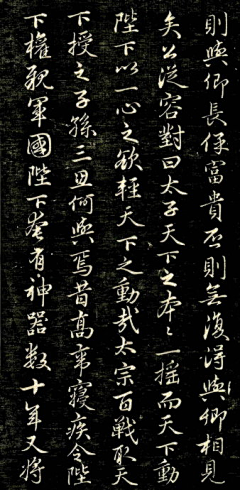 則與卿長保富貴否則無復得與卿相見
矣公從容對曰太子天下之本〻一搖而天下動
陛下以一心之欲輕天下之動哉太宗百戰取天
下授之子孫三且何與焉昔高帝寢疾令陛
下權親軍國陛下奄有神器數十年又將